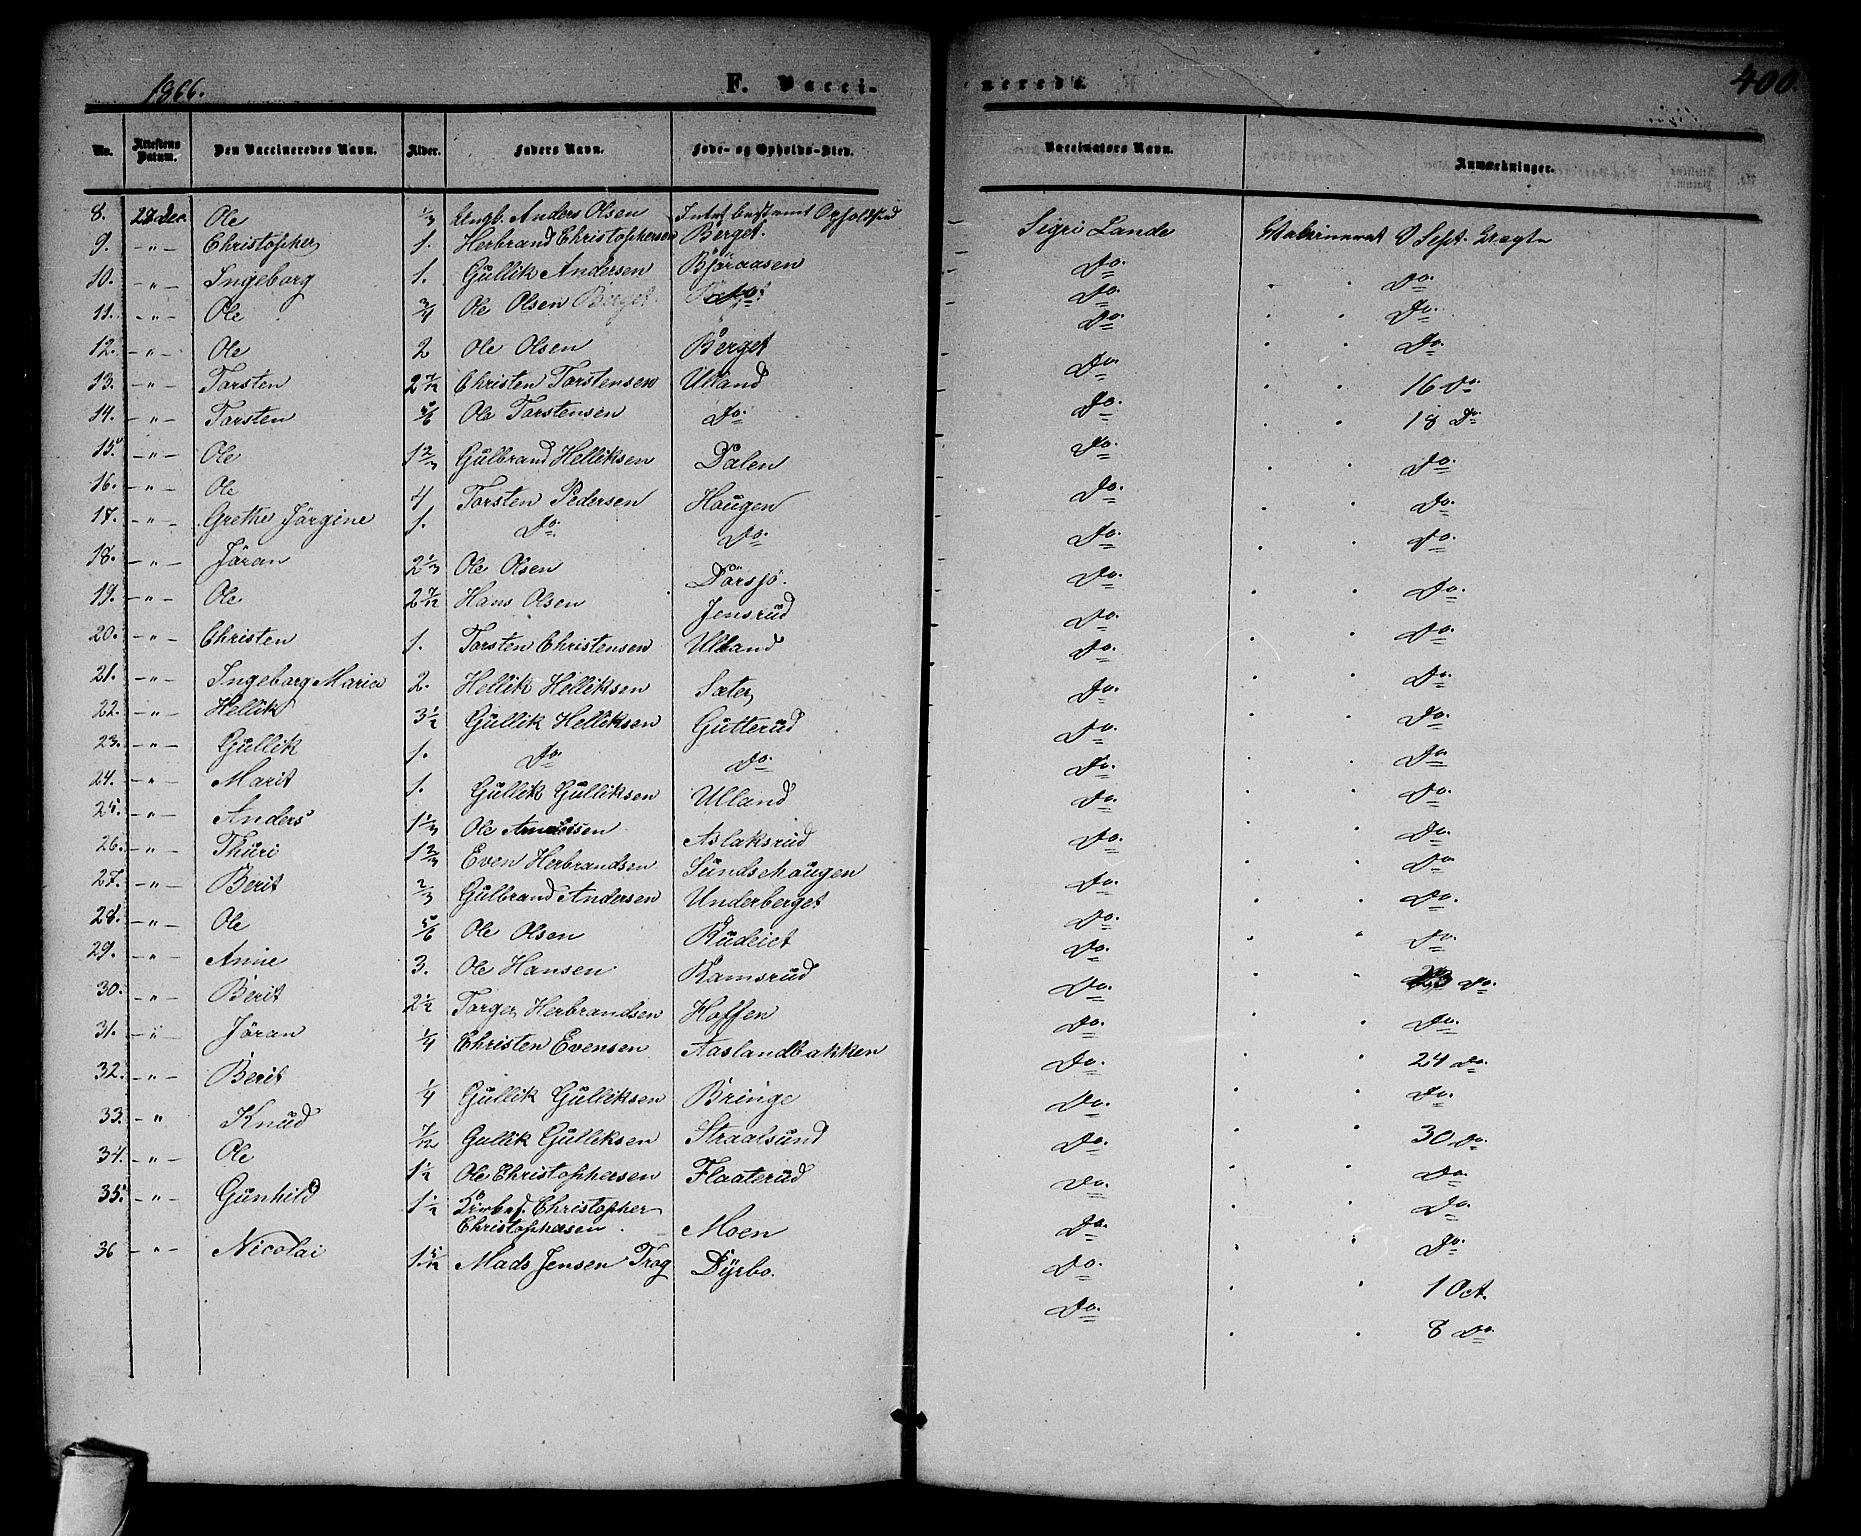 1866. F. Vacci- nerede. 400.
No. Attestens Datum. Den Vaccineredes Navn. Alder. Faders Navn. Føde- og Opholds-Sted. Vaccinators Navn. Anmærkninger.
8. 28 Dec. Ole 1/3 Ungk. Anders Olsen Intet bestemt Opholdsted Sigri Lande Vakcineret 9 Sept. Ægte
9. -"- Christopher 1. Herbrand Christophersen Berget. Do. " " Do.
10. -"- Ingeborg 1. Gullik Andersen Björaasen Do. " " Do.
11. -"- Ole 3/4 Ole Olsen Berget. Do. Do. " " Do.
12. -"- Ole 2 Ole Olsen Berget Do. " " 16 Do.
13. -"- Torsten 2 7/12 Christen Torstensen Ulland Do. " " 18 Do.
14. -"- Torsten 5/6 Ole Torstensen Do. Do. " " Do.
15. -"- Ole 1 2/3 Gulbrand Helliksen Dalen Do. " " Do.
16. -"- Ole 4 Torsten Pedersen Hougen Do. " " Do.
17. -"- Grethe Jörgine 1. Do. Do. Do. " " Do.
18. -"- Jöran 2 1/3 Ole Olsen Dörsjö. Do. " " Do.
19. -"- Ole 2 7/12 Hans Olsen Jensrud Do. " " Do.
20. -"- Christen 1. Torsten Christensen Ulland Do. " " Do.
21. -"- Ingeborg Maria 2. Hellik Helliksen Sæter Do. " " Do.
22. -"- Hellik 3 1/2 Gullik Helliksen Gutterud Do. " " Do.
23. -"- Gullik 1. Do. Do. Do. " " Do.
24. -"- Marit 1. Gullik Gulliksen Ulland Do. " " Do.
25. -"- Anders 1 1/3 Ole Andersen Aslaksrud Do. " " Do.
26. -"- Thuri 1 2/3 Even Herbrandsen Sundsehaugen Do. " " Do.
27. -"- Berit 2/3 Gulbrand Andersen Underberget Do. " " Do.
28. -"- Ole 5/6 Ole Olsen Rudeiet Do. " " 23 Do.
29. -"- Anne 3. Ole Hansen Ramsrud Do. " " Do.
30. -"- Berit 2 1/2 Torger Herbrandsen Hoffen Do. " " 24 Do.
31. -"- Jöran 1/4 Christen Evensen Aaslandbakken Do. " " Do.
32. -"- Berit 1/4 Gullik Gulliksen Bringe Do. " " 30 Do.
33. -" Knud 7/12 Gullik Gulliksen Straalsund Do. " " Do.
34. -"- Ole 1 1/2 Ole Christophersen Flaaterud Do. " " Do.
35. -"- Gunhild 1 1/2 Christopher
Christophersen. Moen Do. " " Do.
36 -"- Nicolai 1 5/12 Mads Jensen Trog Dyrbo. Do. " " 1 Oct.
Do. " " 8 Do.